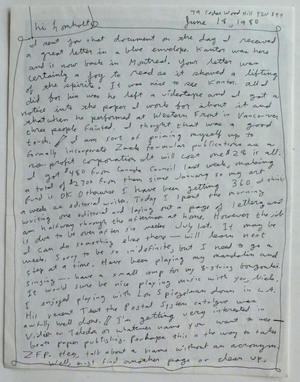 June 19, 1980
I sent you that document on the day I received
a great letter in a blue envelope. Kantor was here
and is now back in Montreal. Your letter was
certainly a joy to read as it showed a lifting
of the spirits. It was nice to see Kantor. All I
did for him was he left a videotape and I got a
notice into the paper I work for about it and
that when he performed at Western Front in Vancouver
three people fainted. I thought that was a good
touch. I am sort of gearing myself up to
formally incorporate formular publications as a
non profit corporation. It will cost me is all.
I got $480 from Canada Council last week, making
a total of $2700 from them since January so my art
fund is OK. However I have been getting 360 clams
a week as editorial writer. Today I spent the morning
writing one editorial and laying out a page of letters and
am halfway through the afternoon at home. However the job
is due to be over after six weeks July last. It may be
I can do something else there — will learn next
week. Sorry to be so indefinite, but I need to go a
step at a time. Have been playing my mandolin and
singing — have a small amp for my 3-string bongobos.
It would sure be nice playing music with you, Rich.
I enjoyed playing with Lon Spiegelman down in L.A.
His recent Test the Postal System catalog was
awfully well done. I'm getting very interested in
Video or whatever name you want to use
books paper publishing. Perhaps this is the way to take
ZFP. Hey, talk about a name without an acronym.
Well, must find another page or clean up.